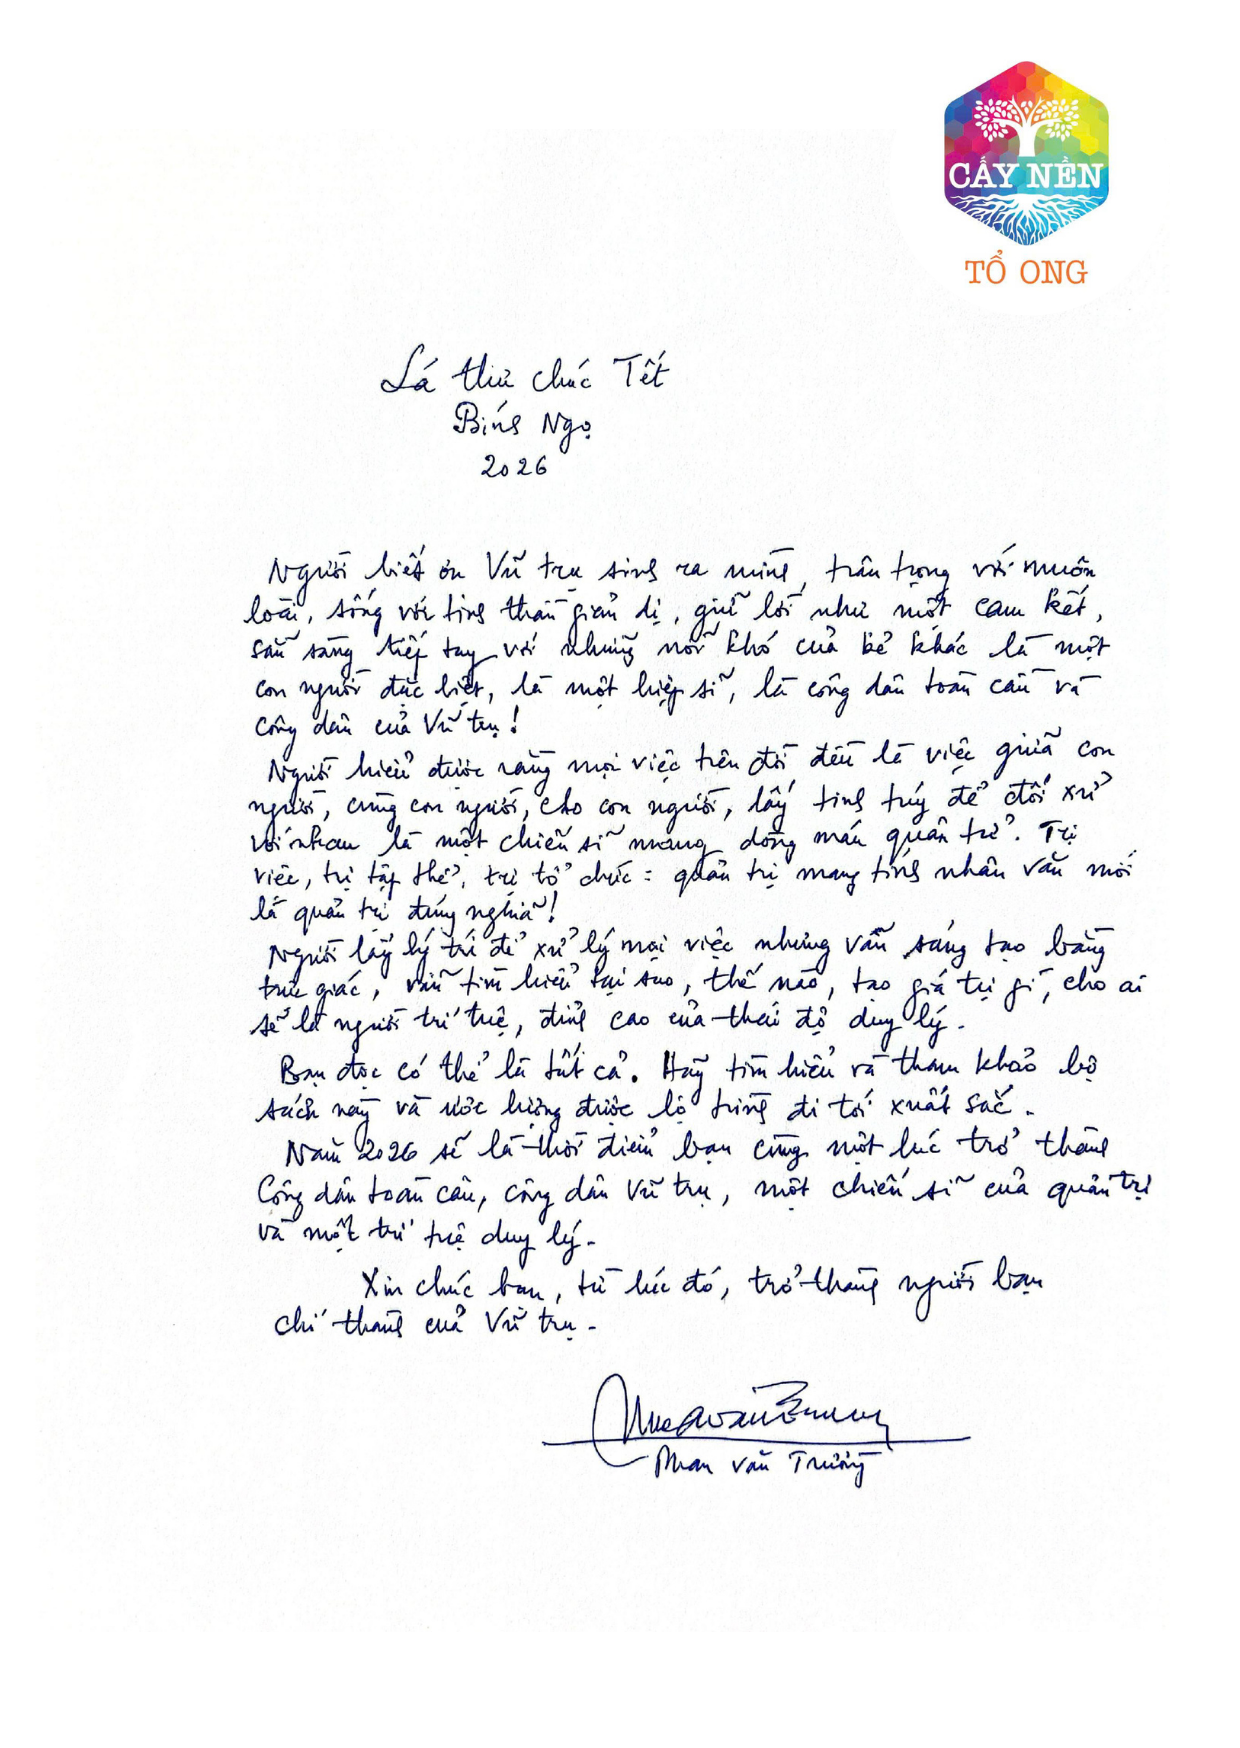 CẤY NỀN
TỔ ONG
Lá thư chúc Tết
Bính Ngọ
2026
Người biết ơn Vũ trụ sinh ra mình, trân trọng với muôn
loài, sống với tinh thần giản dị, giữ lời như một cam kết,
sẵn sàng tiếp tay với những nỗi khó của kẻ khác là một
con người đặc biệt, là một hiệp sĩ, là công dân toàn cầu và
công dân của Vũ trụ!
Người hiểu được rằng mọi việc trên đời đều là việc giữa con
người, cùng con người, cho con người, lấy tinh túy để đối xử
với nhau là một chiến sĩ mang dòng máu quân tử. Trị
việc, trị tập thể, trị tổ chức = quản trị mang tính nhân văn mới
là quản trị đúng nghĩa!
Người lấy lý trí để xử lý mọi việc nhưng vẫn sáng tạo bằng
trực giác, vẫn tìm hiểu tại sao, thế nào, tạo giá trị gì, cho ai
sẽ là người trí tuệ, đỉnh cao của thái độ duy lý.
Bạn đọc có thể là tất cả. Hãy tìm hiểu và tham khảo bộ
sách này và ước lượng được lộ trình đi tới xuất sắc.
Năm 2026 sẽ là thời điểm bạn cùng một lúc trở thành
Công dân toàn cầu, công dân Vũ trụ, một chiến sĩ của quản trị
và một trí tuệ duy lý.
Xin chúc bạn, từ lúc đó, trở thành người bạn
chí thành của Vũ trụ.
Phan Văn Trường